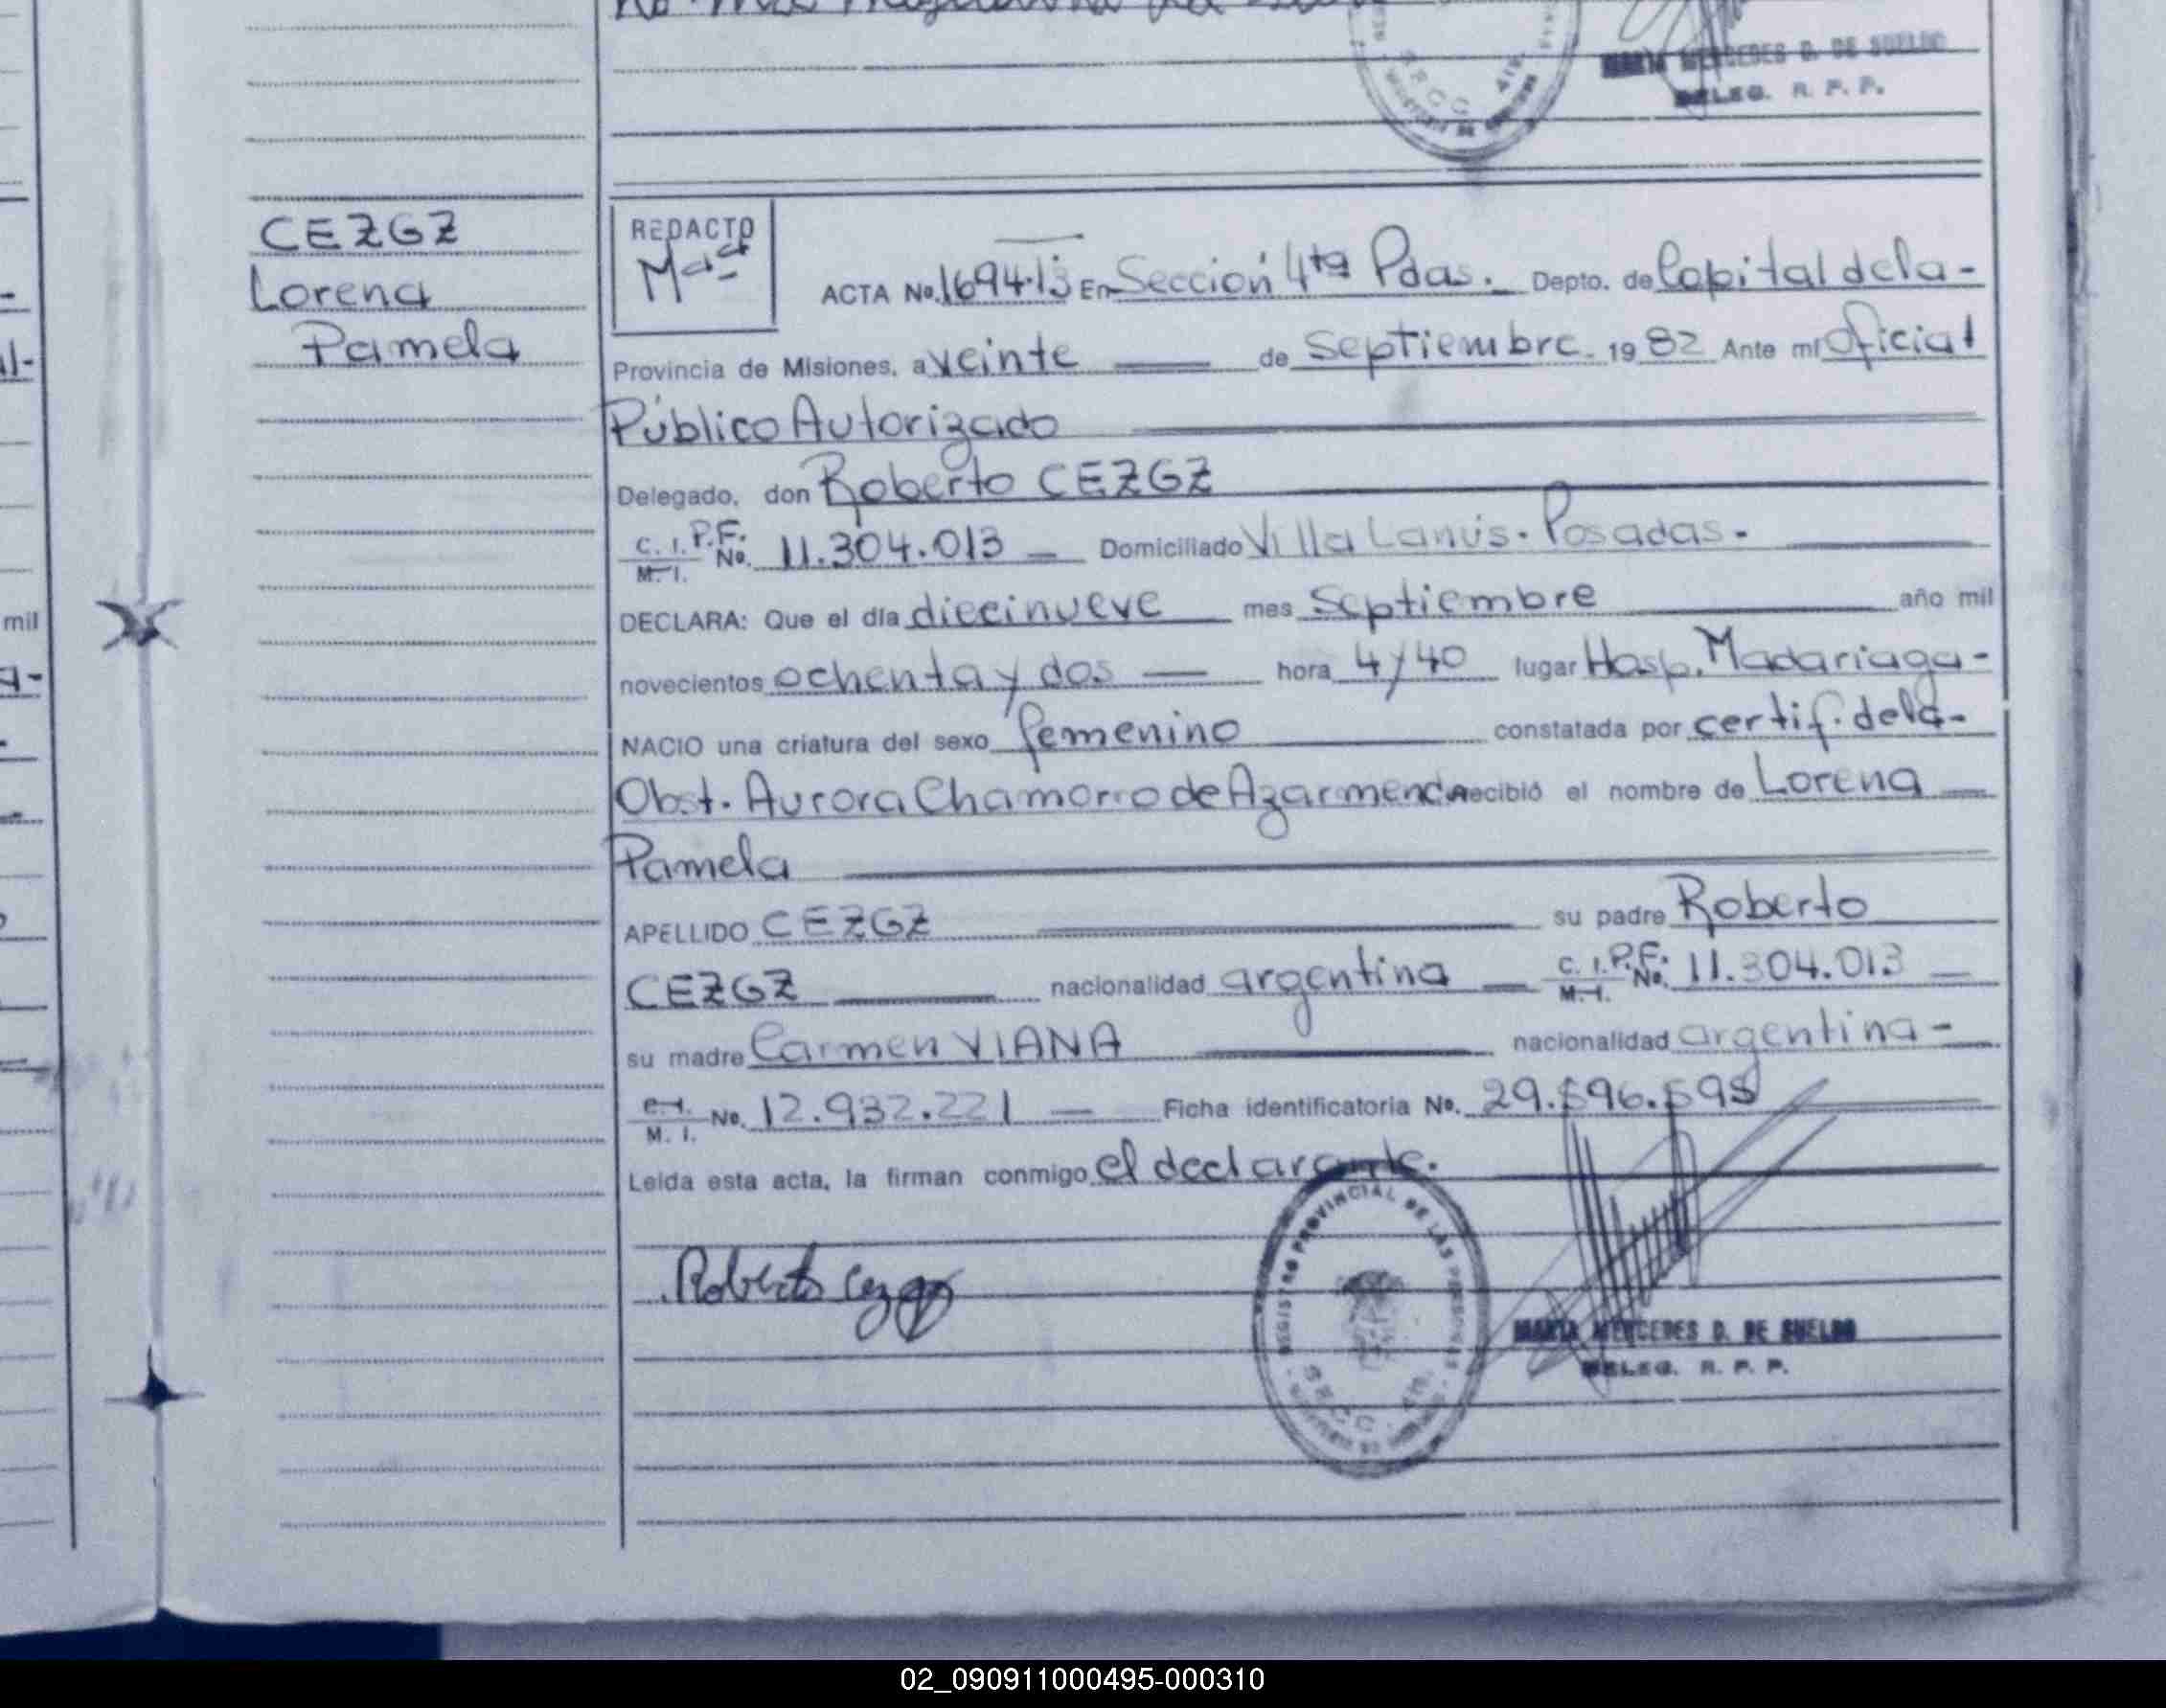 MARIA MERCEDES D. DE SUELDO
DELEG. R. P. P.
CEZGZ
Lorena
Pamela
REDACTO
ACTA No. 1694-13 En Sección 4ta Pdas. Depto. de Capital de la-
Provincia de Misiones, a veinte de Septiembre. 1982 Ante mi oficial
Público Autorizado
Delegado, don Roberto CEZGZ
C. I. P.F. M. I. No. 11.304.013 Domiciliado Villa Lanús. Posadas.
DECLARA: Que el día diecinueve mes Septiembre año mil
novecientos ochenta y dos hora 4 y 40 lugar Hosp. Madariaga-
NACIO una criatura del sexo femenino constatada por certif. dela-
Obst. Aurora Chamorro de Azarmendi recibió el nombre de Lorena
Pamela
APELLIDO CEZGZ su padre Roberto
CEZGZ nacionalidad argentina C. I. P.F. M. I. No. 11.304.013
su madre Carmen VIANA nacionalidad argentina-
C. I. M. I. No. 12.932.221 Ficha identificatoria No. 29.596.595
Leída esta acta, la firman conmigo el declarante.
REGISTRO PROVINCIAL DE LAS PERSONAS
SECC. 4ta.
Roberto Cezgz
MARIA MERCEDES D. DE SUELDO
DELEG. R. P. P.
02_090911000495-000310